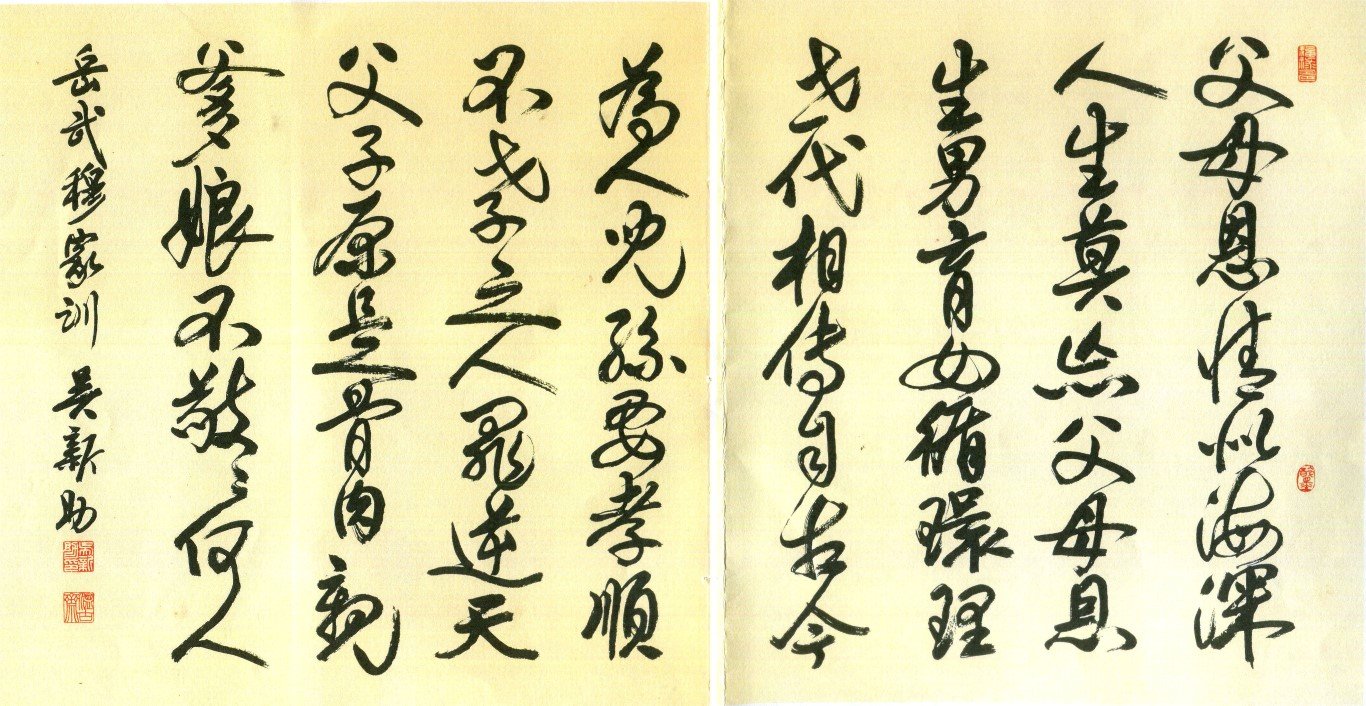 父母恩情似海深
人生莫忘父母恩
生男育女循環理
世代相傳自古今
為人兒孫要孝順
不孝之人罪逆天
父子原是骨肉親
爹娘不敬敬何人
岳武穆家訓 吳新助